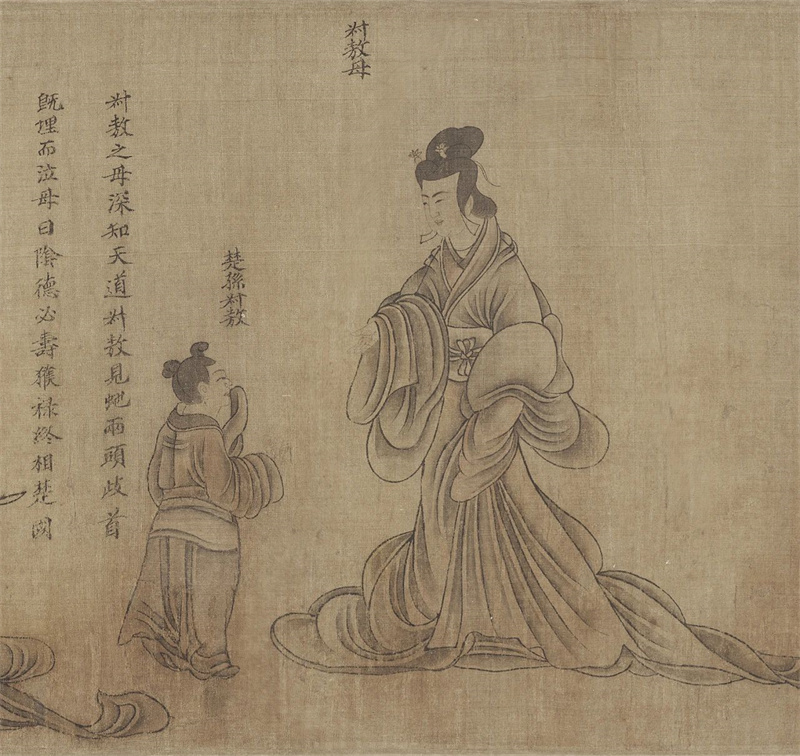 叔敖母
楚孫叔敖
叔敖之母深知天道叔敖見虵兩頭歧首
既埋而泣母曰陰德必壽獲禄終相楚國